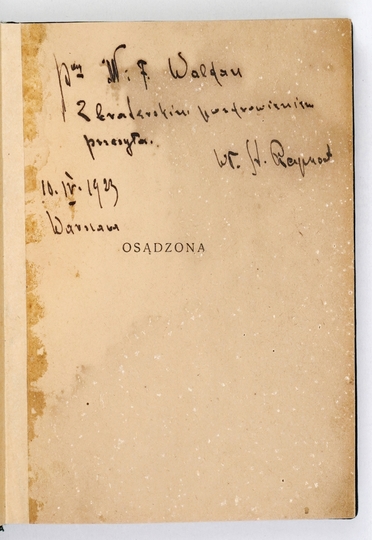 W. F. Waldau
Z braterskim pozdrowieniem
przesyła.
Wł. St. Reymont
10. IV. 1923
Warszawa
OSĄDZONA